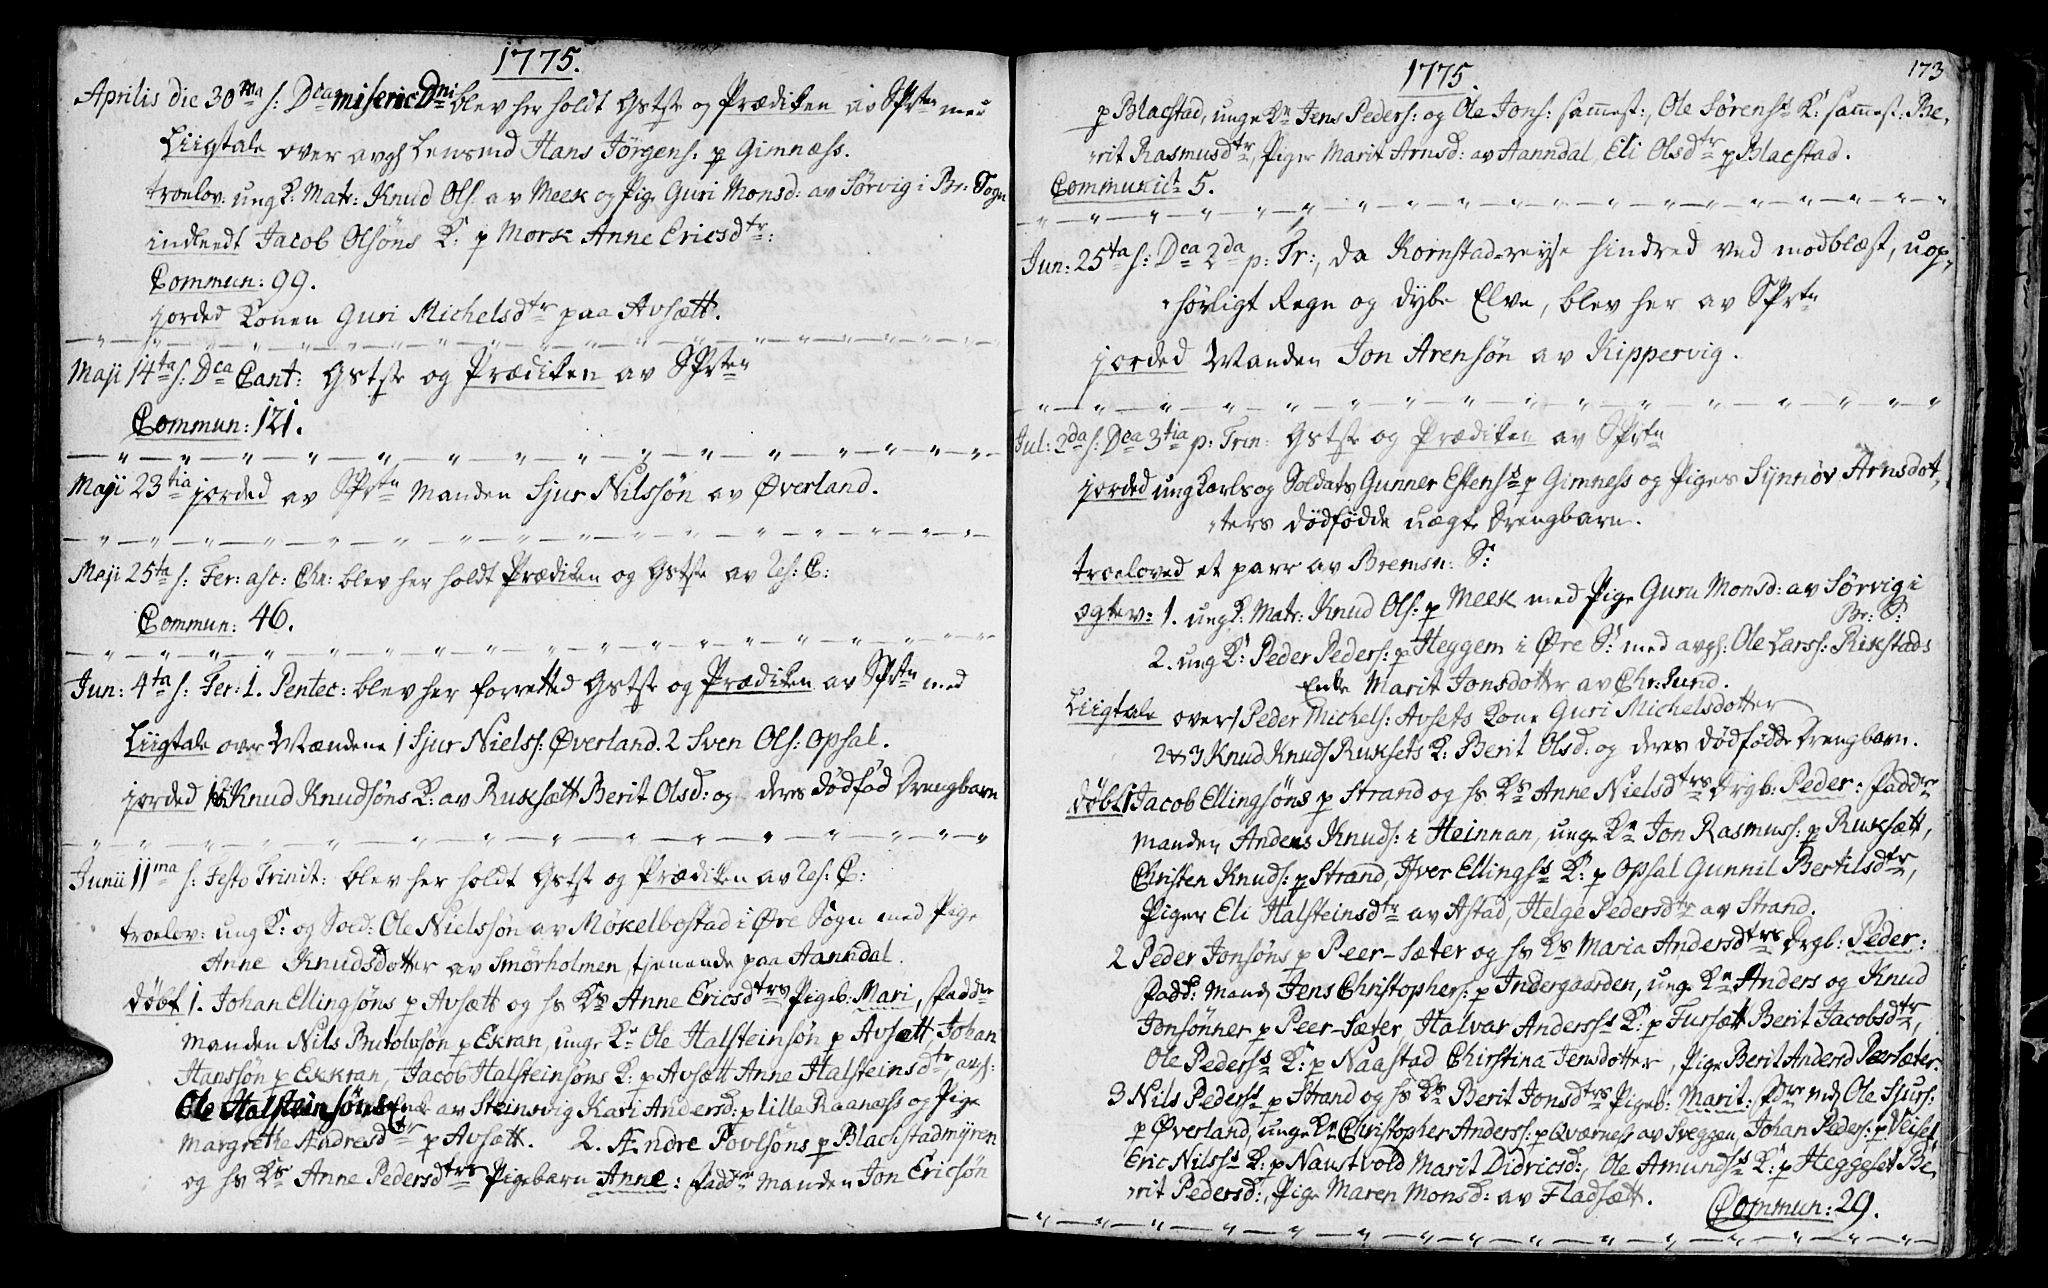 1775.
Aprilis die 30ma s: Dca miseric Dni blev her holdt Gstste og Prædiken av SPrtn med
Liigtale over avgs Lensmd Hans Jörgens: p Gimnæss.
troelov: ung K: Matr: Knud Ols: av Meek og Pige Guri Monsd: av Sørvig i Br: Sogn
indleedt Jacob Olsöns K: p Mork Anne Ericsdtr:
Commun: 99.
jorded Konen Guri Michelsdtr paa Avsætt.
Maji 14ta s: Dca Cant: Gstste og Prædiken av SPrten
Commun: 121.
Maji 23tia jorded av SPrtn Manden Sjur Nilssön av Øverland.
Maji 25ta s: Fer: asc: Chr: blev her holdt Prædiken og Gstste av Res: C:
Commun: 46.
Jun: 4ta s: Fer: 1. Pentec: blev her forretted Gstste og Prædiken av SPrtn med
Liigtale over Mændene 1 Sjur Niels: Øverland. 2 Sven Ols: Opsal.
jorded Knud Knudsöns K: av Ruksætt Berit Olsd: og deres dödfød Drengbarn
Junii 11ma s: Festo Trinit: blev her holdt Gstste og Prædiken av Res: C:
troelov: ung K: og Sold: Ole Nielssön av Mökelbostad i Øre Sogn med Pige
Anne Knudsdotter av Smörholmen, tjenende paa Aanndal.
döbt 1. Johan Ellingsöns p Avsætt og hs Ks Anne Ericsdtrs Pigeb: Mari, Faddre
Manden Nils Brutolvsön p Ekran, unge Kr Ole Halsteinsön p Avsætt, Johan
Hanssön p Ekkran, Jacob Halsteinsöns K: p Avsætt Anne Halsteinsdtr, avs:
Ole Halsteinsöns Enke av Steinsvig Kari Andersd: p lilla Raanæss og Pige
Margrethe Andresdtr p Avsætt. 2. Ændre Povlsöns p Blachstadmÿren
og hs Ks Anne Pedersdtrs Pigebarn Anne: Faddre Manden Jon Ericsön
1775.
173
p Blacstad, unge Kr Jens Peders: og Ole Jons: sammest:, Ole Sørenss K: sammest: Be,
rit Rasmusdtr, Piger Marit Arnsd: av Aanndal, Eli Olsdtr p Blacstad.
Communict 5.
Jun: 25ta s: Dca 2da p: Tr:, da Kornstad-reyse hindred ved modblæst, uop,
hörligt Regn og dybe Elve, blev her av SPrtn
jorded Manden Jon Arensön av Kippervig.
Jul: 2da s: Dca 3tia p: Trin: Gstste og Prædiken av SPrtn
jorded ung Karls og Soldats Gunner Estenss p Gimness og Piges Synnöv Arnsdot,
ters dödfødde uægte Drengbarn.
troeloved et parr av Bremsn: S:
ogtev: 1. ung K: Matr: Knud Ols: p Meek med Pige Guru Monsd: av Sörvig i
Br: S:
2. ung K: Peder Peders: p Heggem i Øre S: med avgs: Ole Larss: Rikstads
Enke Marit Jonsdotter av Chr:sund.
Liigtale over 1 Peder Michels: Avsets Kone Guri Michelsdotter
2 & 3 Knud Knuds Ruksets K: Berit Olsd: og deres dödfødde Drengbarn.
döbt 1 Jacob Ellingsöns p Strand og hs Ks Anne Nielsdtrs Drgb: Peder: Faddre
Manden Anders Knuds: i Heinnan, unge Kr Jon Rasmuss: p Ruksætt,
Christen Knuds: p Strand, Iver Ellingss K: p Opsal Gunnil Bertilsdtr,
Piger Eli Halsteinsdtr av Astad, Helge Pedersdtr av Strand.
2 Peder Jonsöns p Peer-Sæter og hs Ks Maria Andersdtrs Drgb: Peder:
Fadd: Mand Jens Christophers: p Indergaarden, unge Kr Anders og Knud
Jonsönner p Peer-Sæter, Halvar Anderss K: p Fursætt Berit Jacobsdtr,
Ole Pederss K: p Naastad Chirstina Jensdotter, Pige Berit Andersd Peersæter.
3 Nils Pederss p Strand og hs Ks Berit Jonsdtrs Pigeb: Marit: Fdre Md Ole Sjurs:
p Øverland, unge Kr Christopher Anderss: p Qværness av Sveggen, Johan Peders: p Veiset,
Eric Nilss K: p Naustvold Marit Didricsd:, Ole Amundss K: p Heggeset Be,
rit Pedersd:, Pige Maren Monsd: av Fladsætt. Commun: 29.